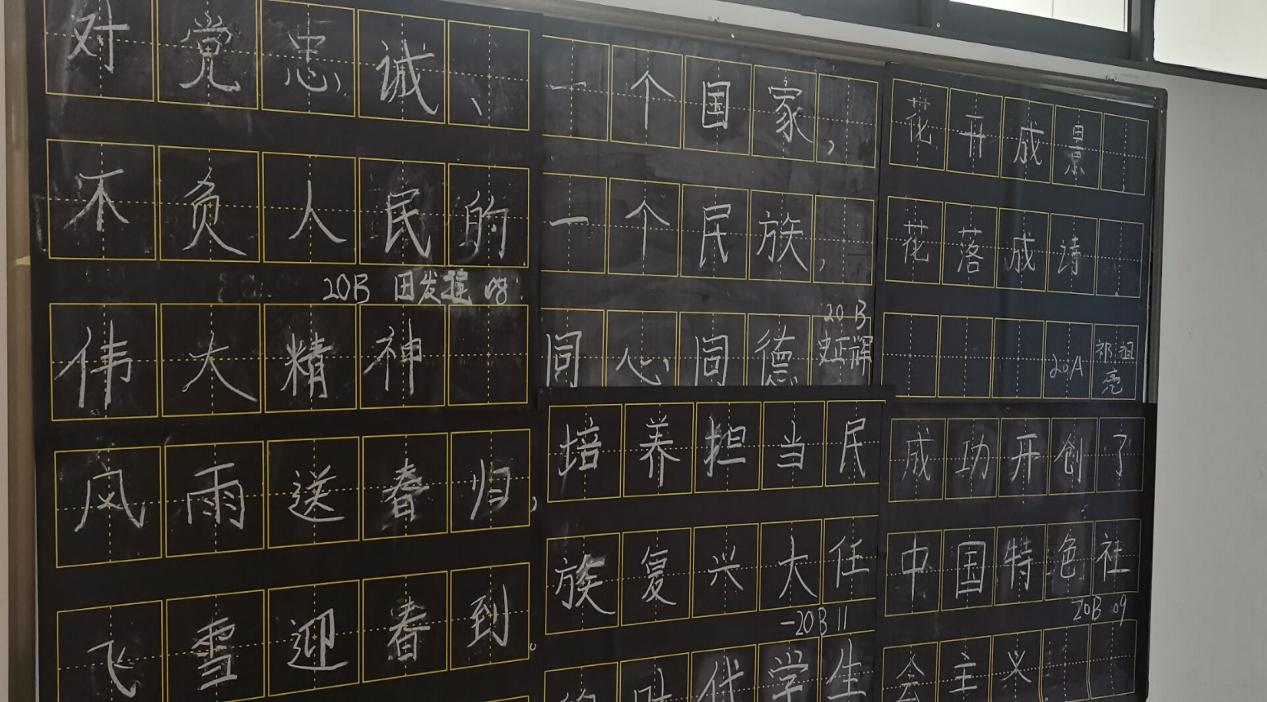 对党忠诚、
不负人民的
20B 田发 08
伟大精神
风雨送春归,
飞雪迎春到。
一个国家,
一个民族,
同心同德
20B
史正辉
培养担当民
族复兴大任
-20B 11
时代学生
花开成景
花落成诗
20A 祁祖亮
成功开创了
中国特色社
20B 09
会主义